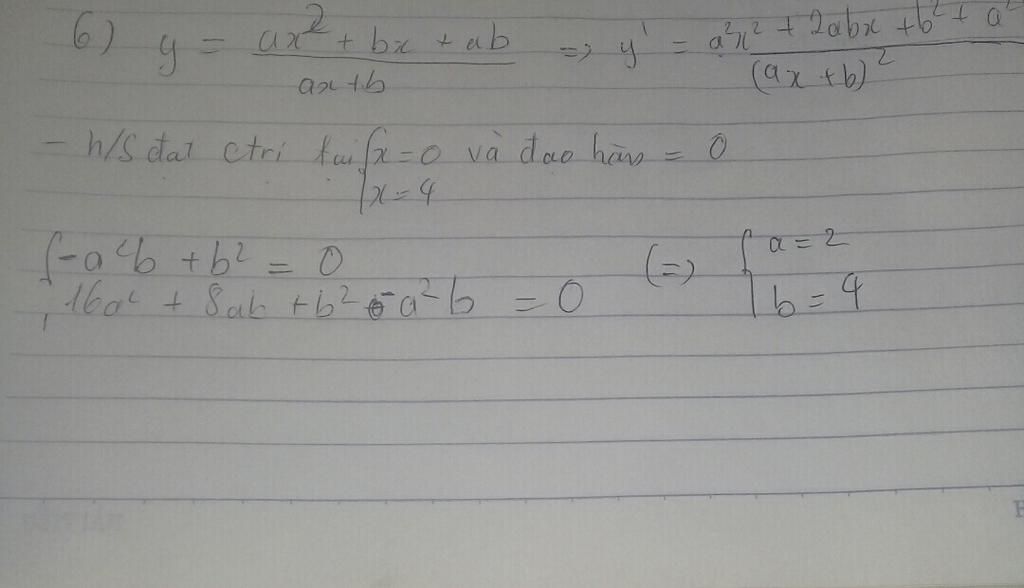 6) y = \frac{ax^2 + bx + ab}{ax + b} => y' = \frac{a^2x^2 + 2abx + b^2 + a^2}{(ax + b)^2}
- h/s đạt ctrị tại { x = 0 và đạo hàm = 0
x = 4
{ -a^2b + b^2 = 0 (=) { a = 2
16a^2 + 8ab + b^2 - a^2b = 0 b = 4